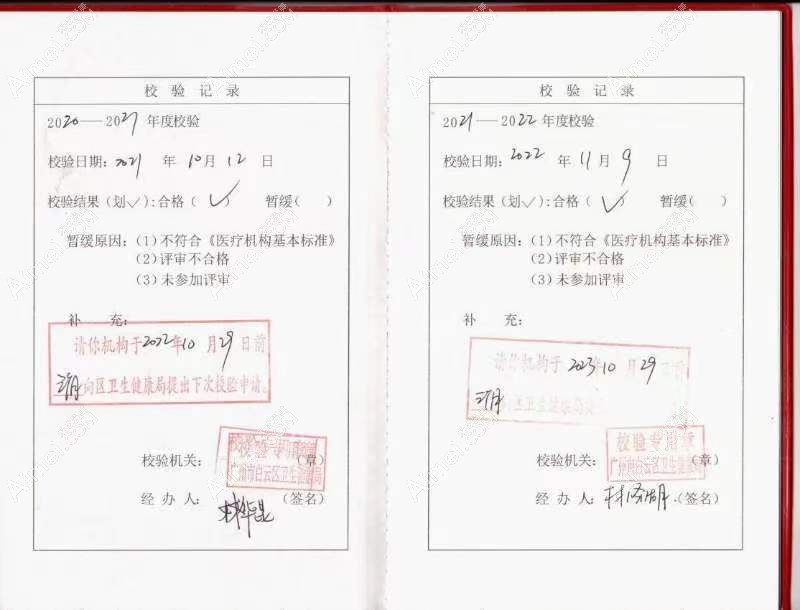 校验记录
2020——2021年度校验
校验日期：2021年10月12日
校验结果（划✓）：合格（✓）暂缓（ ）
暂缓原因：（1）不符合《医疗机构基本标准》
（2）评审不合格
（3）未参加评审
补 充：
请你机构于2022年10月29日前
三个月向区卫生健康局提出下次校验申请。
校验专用章
校验机关： （章）
广州市白云区卫生健康局
经办人： （签名）
校验记录
2021——2022年度校验
校验日期：2022年11月9日
校验结果（划✓）：合格（✓）暂缓（ ）
暂缓原因：（1）不符合《医疗机构基本标准》
（2）评审不合格
（3）未参加评审
补 充：
请你机构于2023年10月29日前
向区卫生健康局
校验专用章
校验机关： （章）
广州市白云区卫生健康局
经办人： （签名）